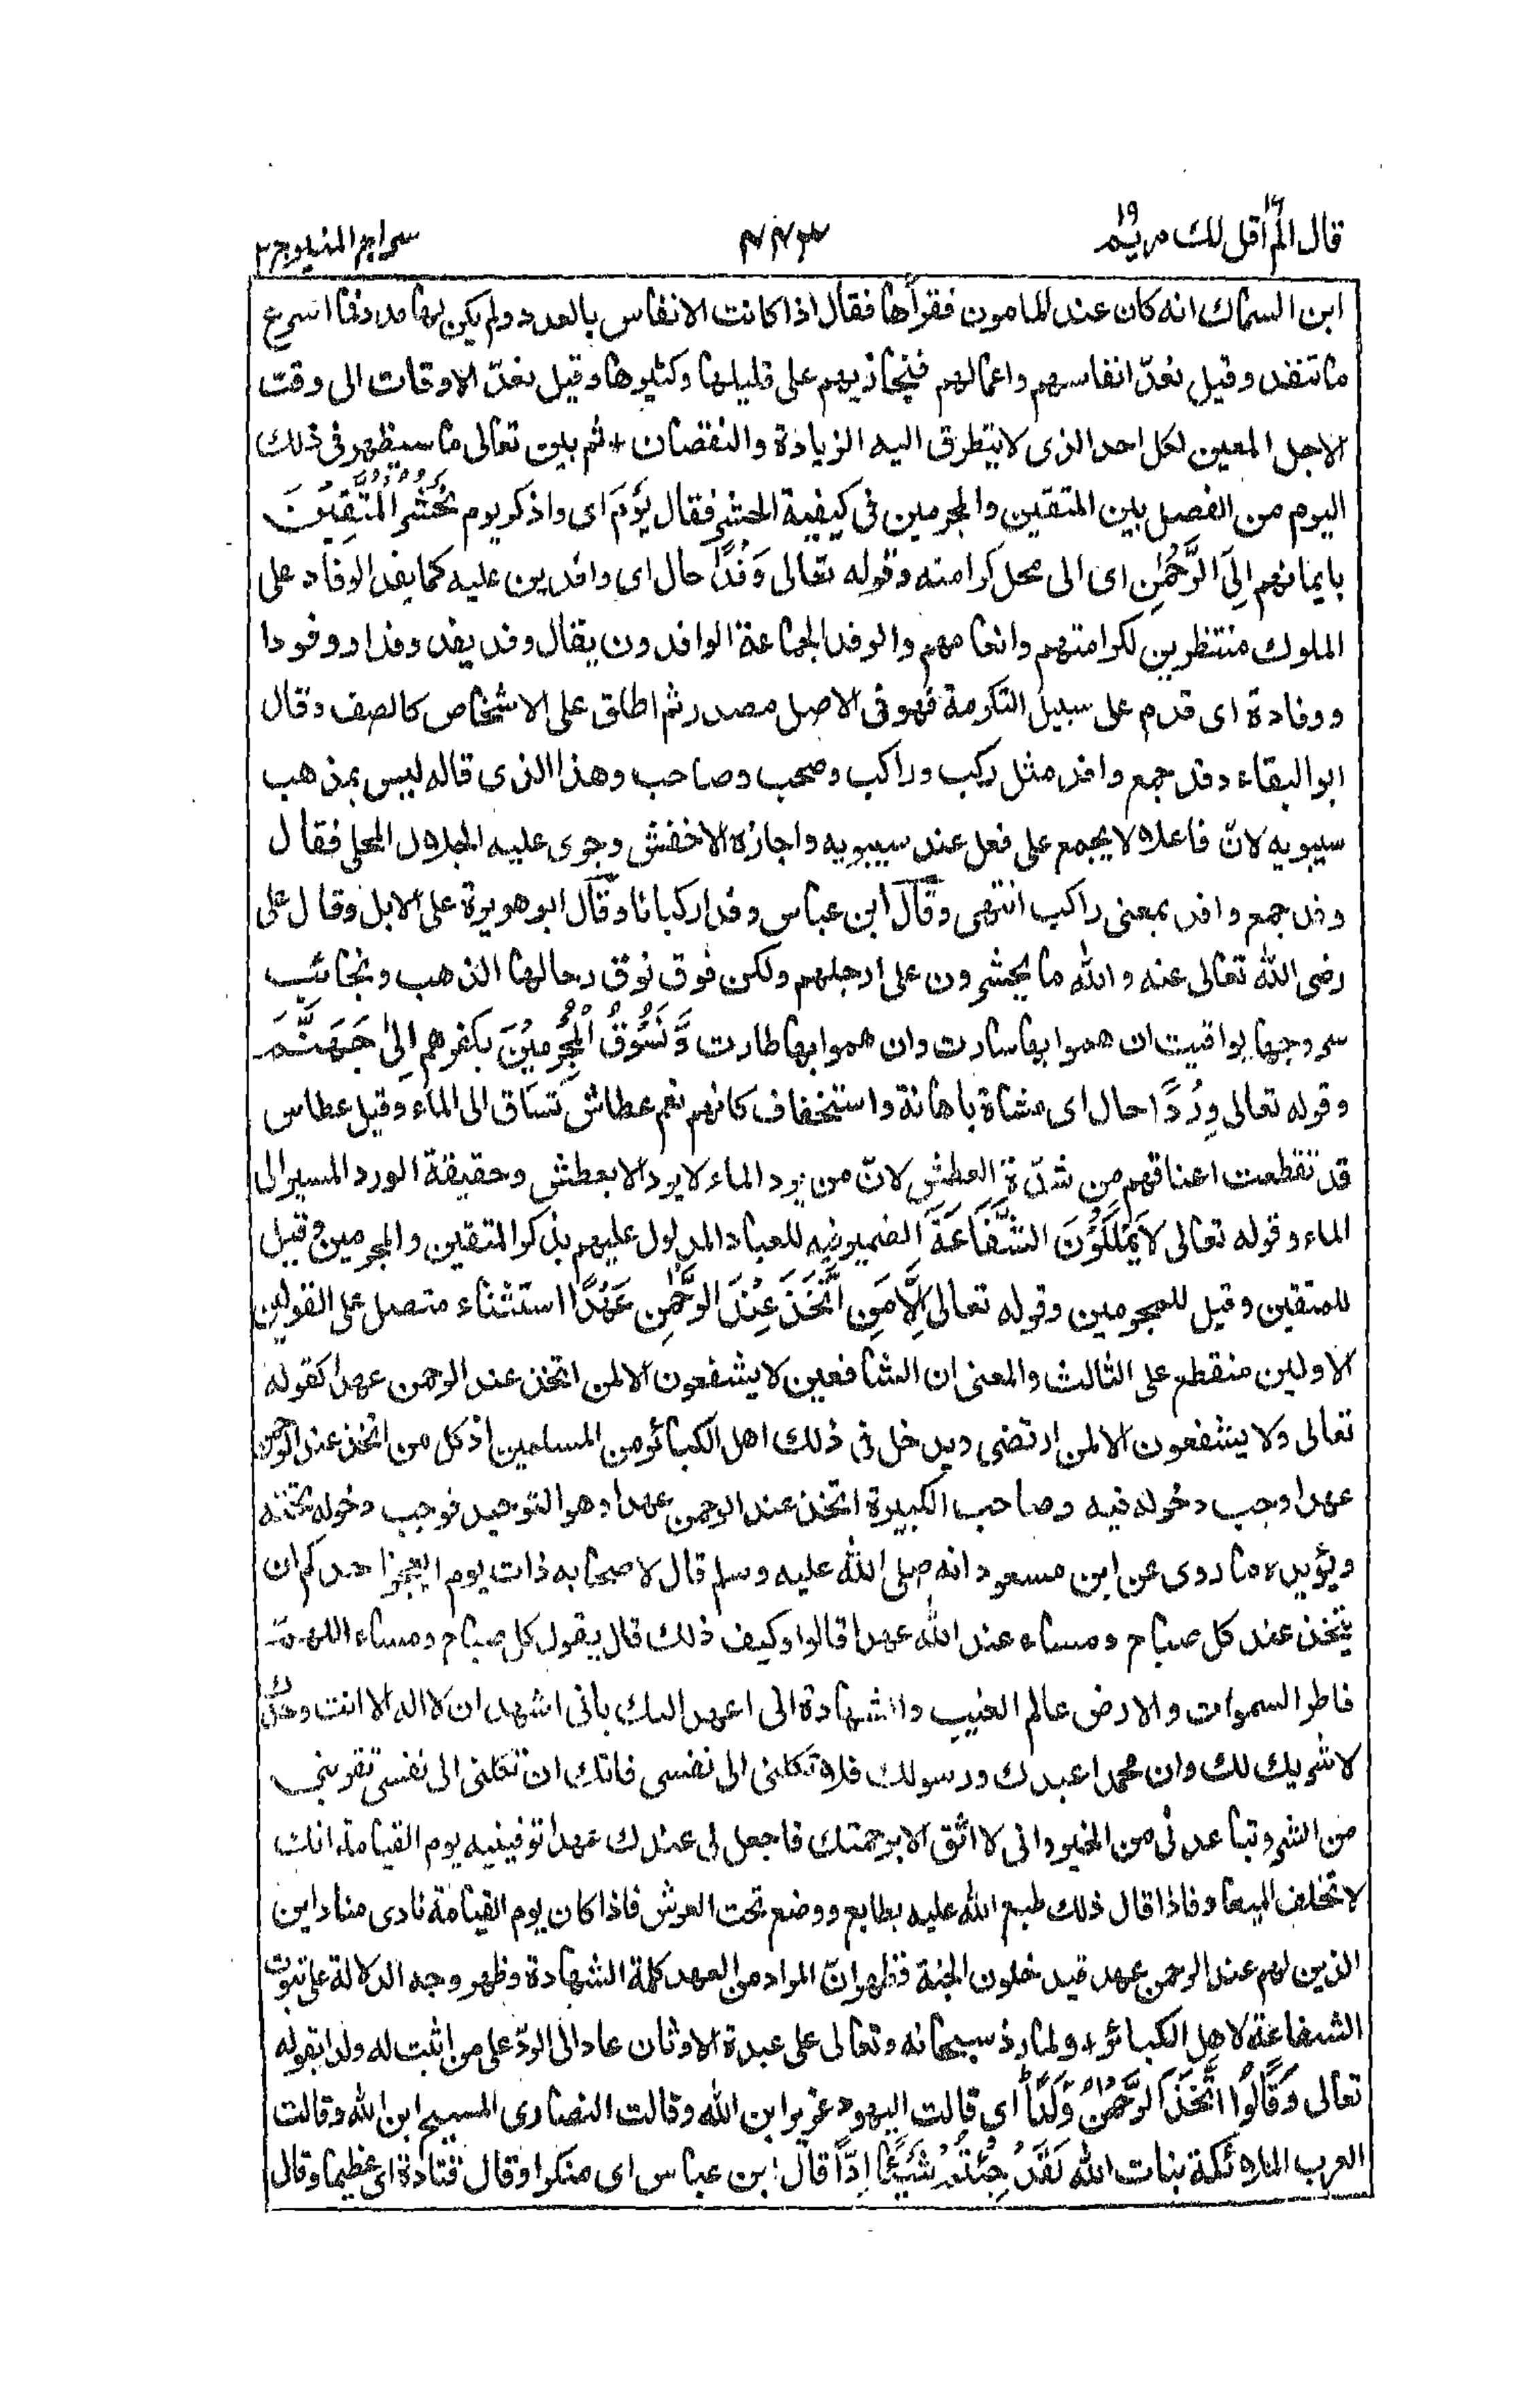 قال الم اقل لك ١٦ مريم ١٩
٤٤٣
سراج المنير ج ٢
ابن السماك انه كان عند المامون فقرأها فقال اذا كانت الانفاس بالعدد ولم يكن لها مدد فما اسرع
ما تنفد وقيل نعدّ انفاسهم واعمالهم فنجازيهم على قليلها وكثيرها وقيل نعدّ الاوقات الى وقت
الاجل المعين لكل احد الذى لا يتطرق اليه الزيادة والنقصان + ثم بين تعالى ما سيظهر فى ذلك
اليوم من الفصل بين المتقين والمجرمين فى كيفية الحشر فقال يَوْمَ اى واذكر يوم نَحْشُرُ الْمُتَّقِيْنَ
بايمانهم اِلَى الرَّحْمٰنِ اى الى محل كرامته وقوله تعالى وَفْدًا حال اى وافدين عليه كما يفد الوفاد على
الملوك منتظرين لكرامتهم وانعامهم والوفد الجماعة الوافدون يقال وفد يفد وفدا ووفودا
ووفادة اى قدم على سبيل التكرمة فهو فى الاصل مصدر ثم اطلق على الاشخاص كالصف وقال
ابو البقاء وفد جمع وافد مثل ركب وراكب وصحب وصاحب وهذا الذى قاله ليس بمذهب
سيبويه لانّ فاعلا لا يجمع على فعل عند سيبويه واجازه الاخفش وجرى عليه الجلال المحلى فقال
وفد جمع وافد بمعنى راكب انتهى وقال ابن عباس وفدا ركبانا وقال ابو هريرة على الابل وقال على
رضى الله تعالى عنه والله ما يحشرون على ارجلهم ولكن فوق نوق رحالها الذهب ونجائب
سروجها يواقيت ان هموا بها سارت وان هموا بها طارت وَّنَسُوْقُ الْمُجْرِمِيْنَ بكفرهم اِلٰى جَهَنَّمَ
وقوله تعالى وِرْدًا حال اى مشاة باهانة واستخفاف كانهم نعم عطاش تساق الى الماء وقيل عطاس
قد تقطعت اعناقهم من شدّة العطش لانّ من يرد الماء لا يرد الا بعطش وحقيقة الورد المسير الى
الماء وقوله تعالى لَا يَمْلِكُوْنَ الشَّفَاعَةَ الضمير فيه للعباد المدلول عليهم بذكر المتقين والمجرمين وقيل
للمتقين وقيل للمجرمين وقوله تعالى اِلَّا مَنِ اتَّخَذَ عِنْدَ الرَّحْمٰنِ عَهْدًا استثناء متصل على القولين
الاولين منقطع على الثالث والمعنى ان الشافعين لا يشفعون الا لمن اتخذ عند الرحمن عهدا كقوله
تعالى ولا يشفعون الا لمن ارتضى ويدخل فى ذلك اهل الكبائر من المسلمين اذ كل من اتخذ عند الرحمن
عهدا وجب دخوله فيه وصاحب الكبيرة اتخذ عند الرحمن عهدا وهو التوحيد فوجب دخوله تحته
ويؤيده ما روى عن ابن مسعود انه صلى الله عليه وسلم قال لاصحابه ذات يوم ايعجز احدكم ان
يتخذ عند كل صباح ومساء عند الله عهدا قالوا وكيف ذلك قال يقول كل صباح ومساء اللهمّ
فاطر السموات والارض عالم الغيب والشهادة انى اعهد اليك بانى اشهد ان لا اله الا انت وحدك
لا شريك لك وان محمدا عبدك ورسولك فلا تكلنى الى نفسى فانك ان تكلنى الى نفسى تقربنى
من الشر وتباعدنى من الخير وانى لا اثق الا برحمتك فاجعل لى عندك عهدا توفينيه يوم القيامة انك
لا تخلف الميعاد فاذا قال ذلك طبع الله عليه بطابع ووضع تحت العرش فاذا كان يوم القيامة نادى مناد اين
الذين لهم عند الرحمن عهد فيدخلون الجنة فظهر انّ المراد من العهد كلمة الشهادة وظهر وجه الدلالة على ثبوت
الشفاعة لاهل الكبائر + ولما رد سبحانه وتعالى على عبدة الاوثان عاد الى الردّ على من اثبت له ولدا بقوله
تعالى وَقَالُوا اتَّخَذَ الرَّحْمٰنُ وَلَدًا اى قالت اليهود عزير ابن الله وقالت النصارى المسيح ابن الله وقالت
العرب الملائكة بنات الله لَقَدْ جِئْتُمْ شَيْئًا اِدًّا قال ابن عباس اى منكرا وقال قتادة اى عظيما وقال